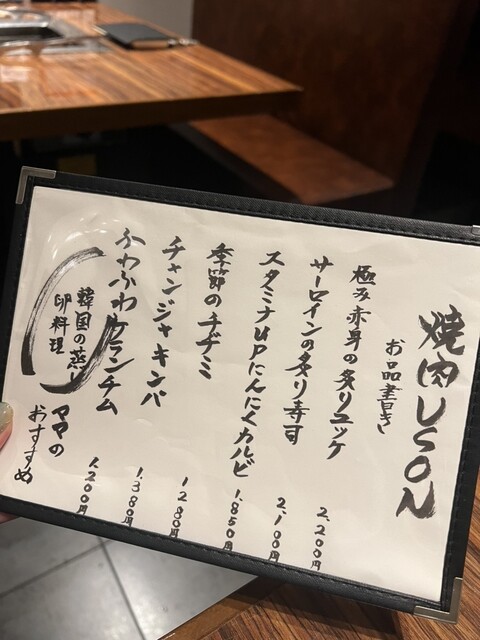 焼肉USON
お品書き
極み赤身の炙りユッケ 2,200円
サーロインの炙り寿司 2,100円
スタミナupにんにくカルビ 1,850円
季節のチヂミ 1,280円
チャンジャキンパ 1,380円
ふわふわケランチム 1,200円
韓国の蒸し
卵料理
ママの
おすすめ